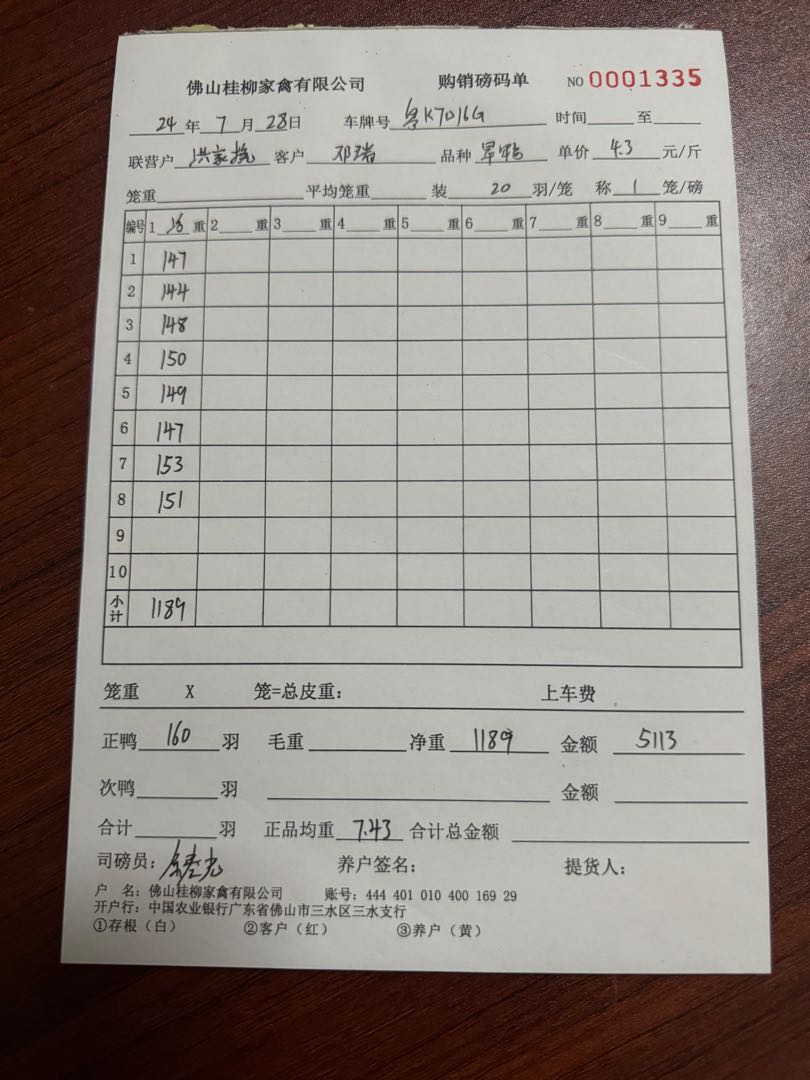 佛山桂柳家禽有限公司 购销磅码单 NO 0001335
24 年 7 月 28 日 车牌号 粤K7016G 时间 至
联营户 洪家 客户 邓瑞 品种 单价 4.3 元/斤
笼重 平均笼重 装 20 羽/笼 称 1 笼/磅
编号 1 重 2 重 3 重 4 重 5 重 6 重 7 重 8 重 9 重
1 147
2 144
3 148
4 150
5 149
6 147
7 153
8 151
9
10
小计 1189
笼重 X 笼=总皮重: 上车费
正鸭 160 羽 毛重 净重 1189 金额 5113
次鸭 羽 金额
合计 羽 正品均重 7.43 合计总金额
司磅员: 养户签名: 提货人:
户 名: 佛山桂柳家禽有限公司 账号: 444 401 010 400 169 29
开户行: 中国农业银行广东省佛山市三水区三水支行
①存根（白） ②客户（红） ③养户（黄）